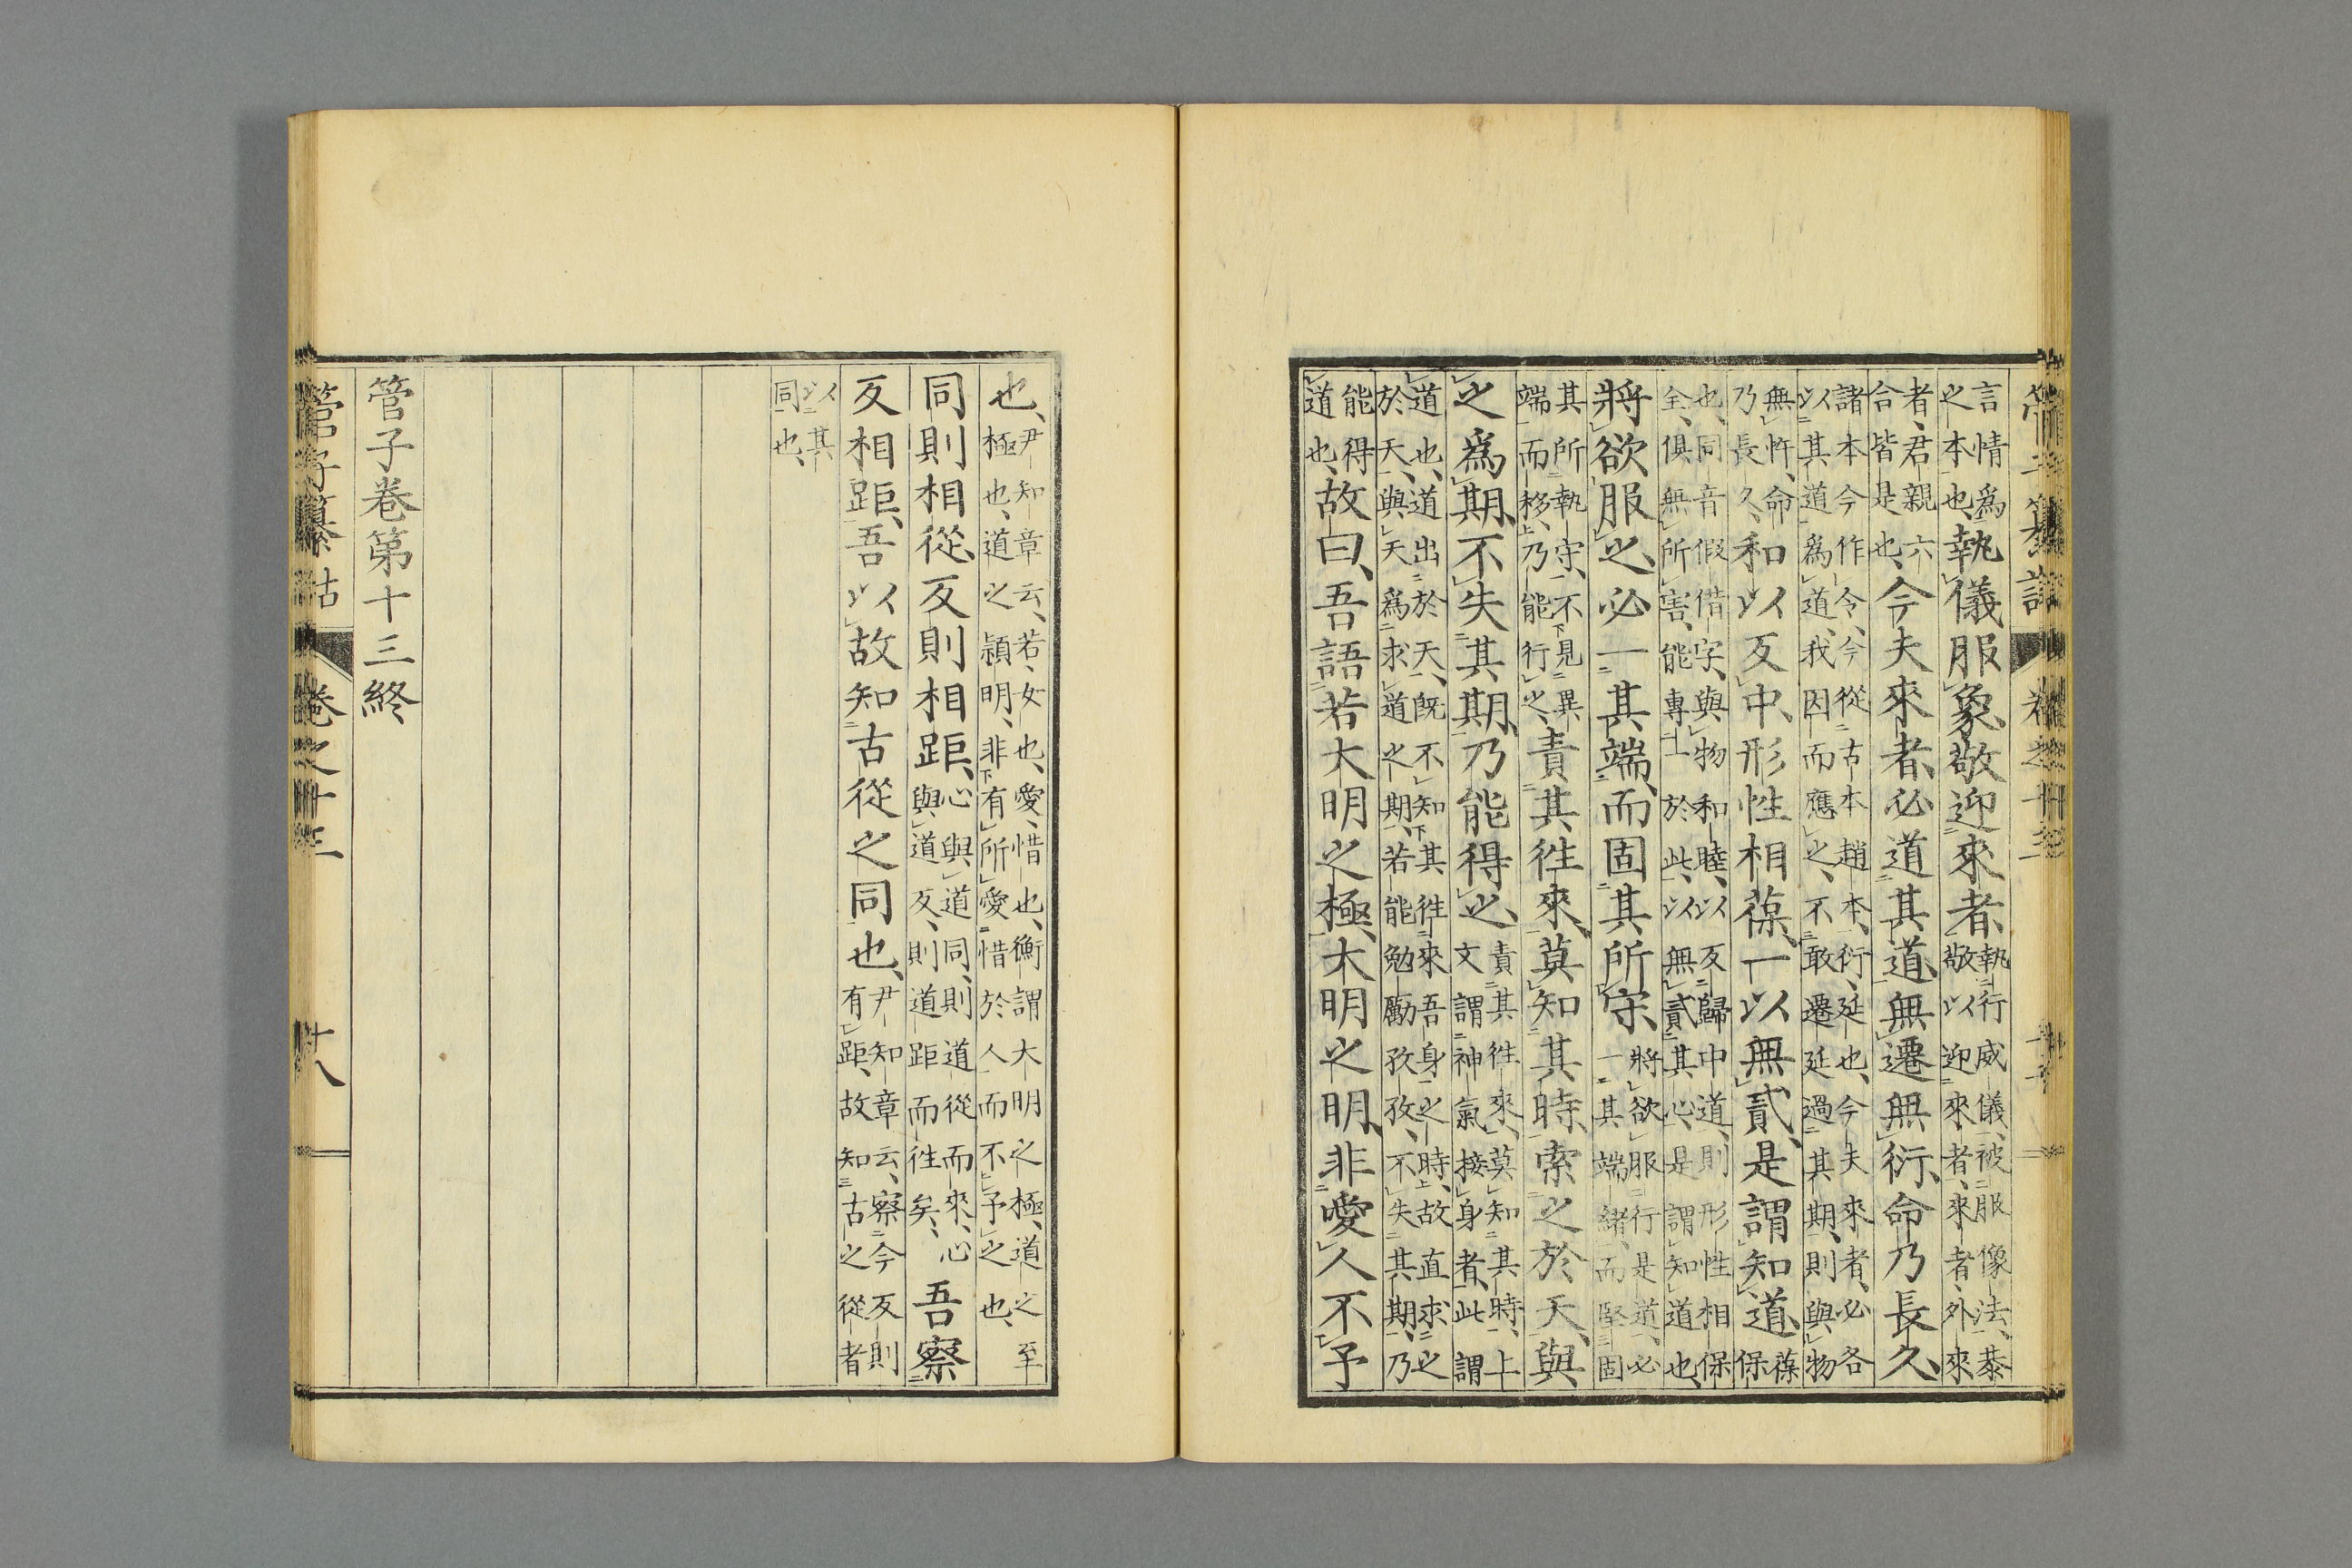 言情爲
之本也、執儀服象、敬迎來者、執行威儀、被服像法、恭
敬以迎來者、來者、外來
者、君親六
合皆是也、今夫來者、必道其道、無遷無衍、命乃長久、
諸本今作令、今從古本趙本、衍、延也、今夫來者、必各
以其道爲道、我因而應之、不敢遷延過其期、則與物
無忤、命
乃長久、和以反中、形性相葆、一以無貳、是謂知道、葆
保
也、同音假借字、與物和睦、以反歸中道、則形性相保
全、俱無所害、能專一於此、以無貳其心、是謂知道也、
將欲服之、必一其端、而固其所守、將欲服行是道、必
一其端緒、而堅固
其所執守、不見異
端而移、乃能行之、責其往來、莫知其時、索之於天、與
之爲期、不失其期、乃能得之、責其往來、莫知其時、上
文謂神氣接身者、此謂
道也、道出於天、既不知其往來吾身之時、故直求之
於天、與天爲求道之期、若能勉勵孜孜、不失其期、乃
能得
道也、故曰、吾語若大明之極、大明之明、非愛人不予
也、尹知章云、若、女也、愛、惜也、衡謂大明之極、道之至
極也、道之穎明、非有所愛惜於人而不予之也、
同則相從、反則相距、心與道同、則道從而來、心
與道反、則道距而往矣、吾察
反相距、吾以故知古從之同也、尹知章云、察今反則
有距、故知古之從者
以其
同也、
管子卷第十三終
管子纂詁 卷之十三 十八